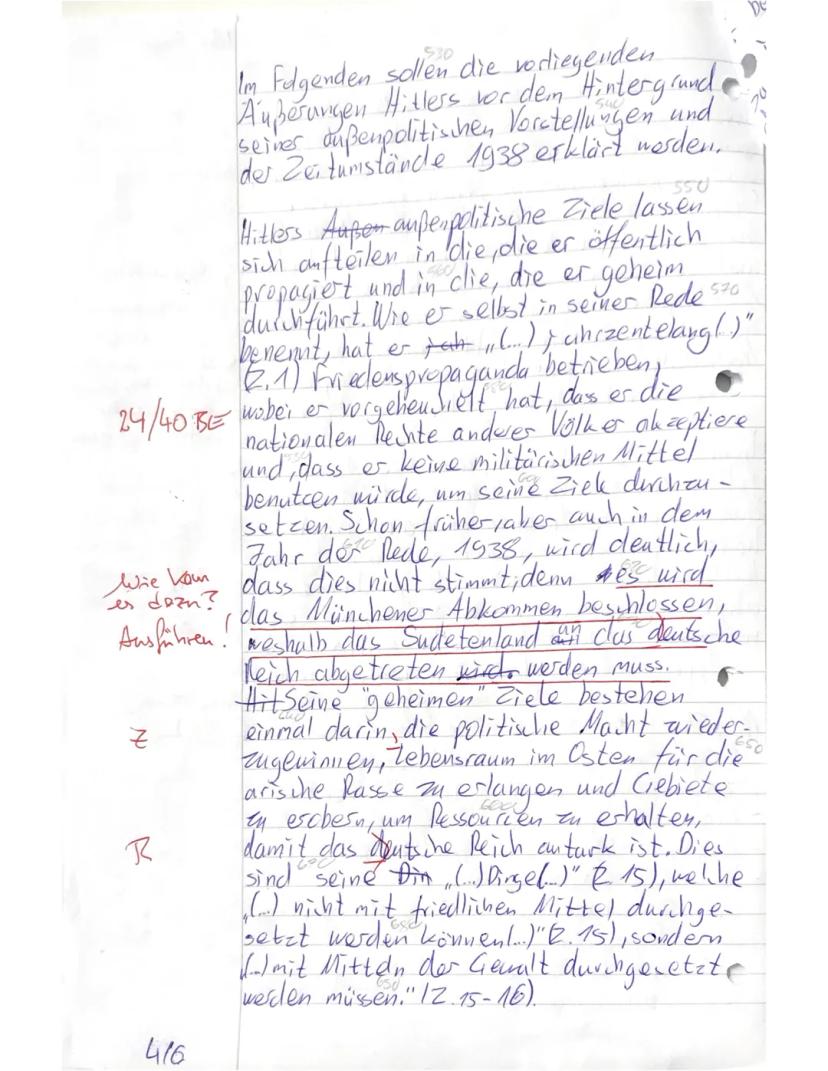 Im Folgenden sollen die vorliegenden
Äußerungen Hitlers vor dem Hintergrund
seiner außenpolitischen Vorstellungen und
der Zeitumstände 1938 erklärt werden.
Hitlers Außen außenpolitische Ziele lassen
sich aufteilen in die, die er öffentlich
propagiert und in die, die er geheim
durchführt. Wie er selbst in seiner Rede
benennt, hat er jah „(...) jahrzentelang(..)"
(Z.1) Friedenspropaganda betrieben,
wobei er vorgeheuchelt hat, das er die
24/40 BE
nationalen Rechte anderer Völker akzeptiere
und, dass er keine militärischen Mittel
benutzen würde, um seine Ziele durchzu-
setzen. Schon früher, aber auch in dem
Jahr der Rede, 1938, wird deutlich,
dass dies nicht stimmt, denn es wird
Wie kam
es dazu?
Ausführen!
das Münchener Abkommen beschlossen,
weshalb das Sudetenland an das deutsche
Reich abgetreten wird. werden muss.
Hit Seine "geheimen" Ziele bestehen
einmal darin, die politische Macht wieder-
Z
zugewinnen, Lebensraum im Osten für die
arische Rasse zu erlangen und Gebiete
zu erobern, um Ressourcen zu erhalten,
damit das deutsche Reich autark ist. Dies
R
sind seine Din „(...)Dinge(...)" (Z.15), welche
„(...) nicht mit friedlichen Mittel durchge-
setzt werden können(...)" (Z.15), sondern
(...)mit Mitteln der Gewalt durchgesetzt
werden müssen." (Z.15-16).
530
540
550
560
570
600
610
650
4/6